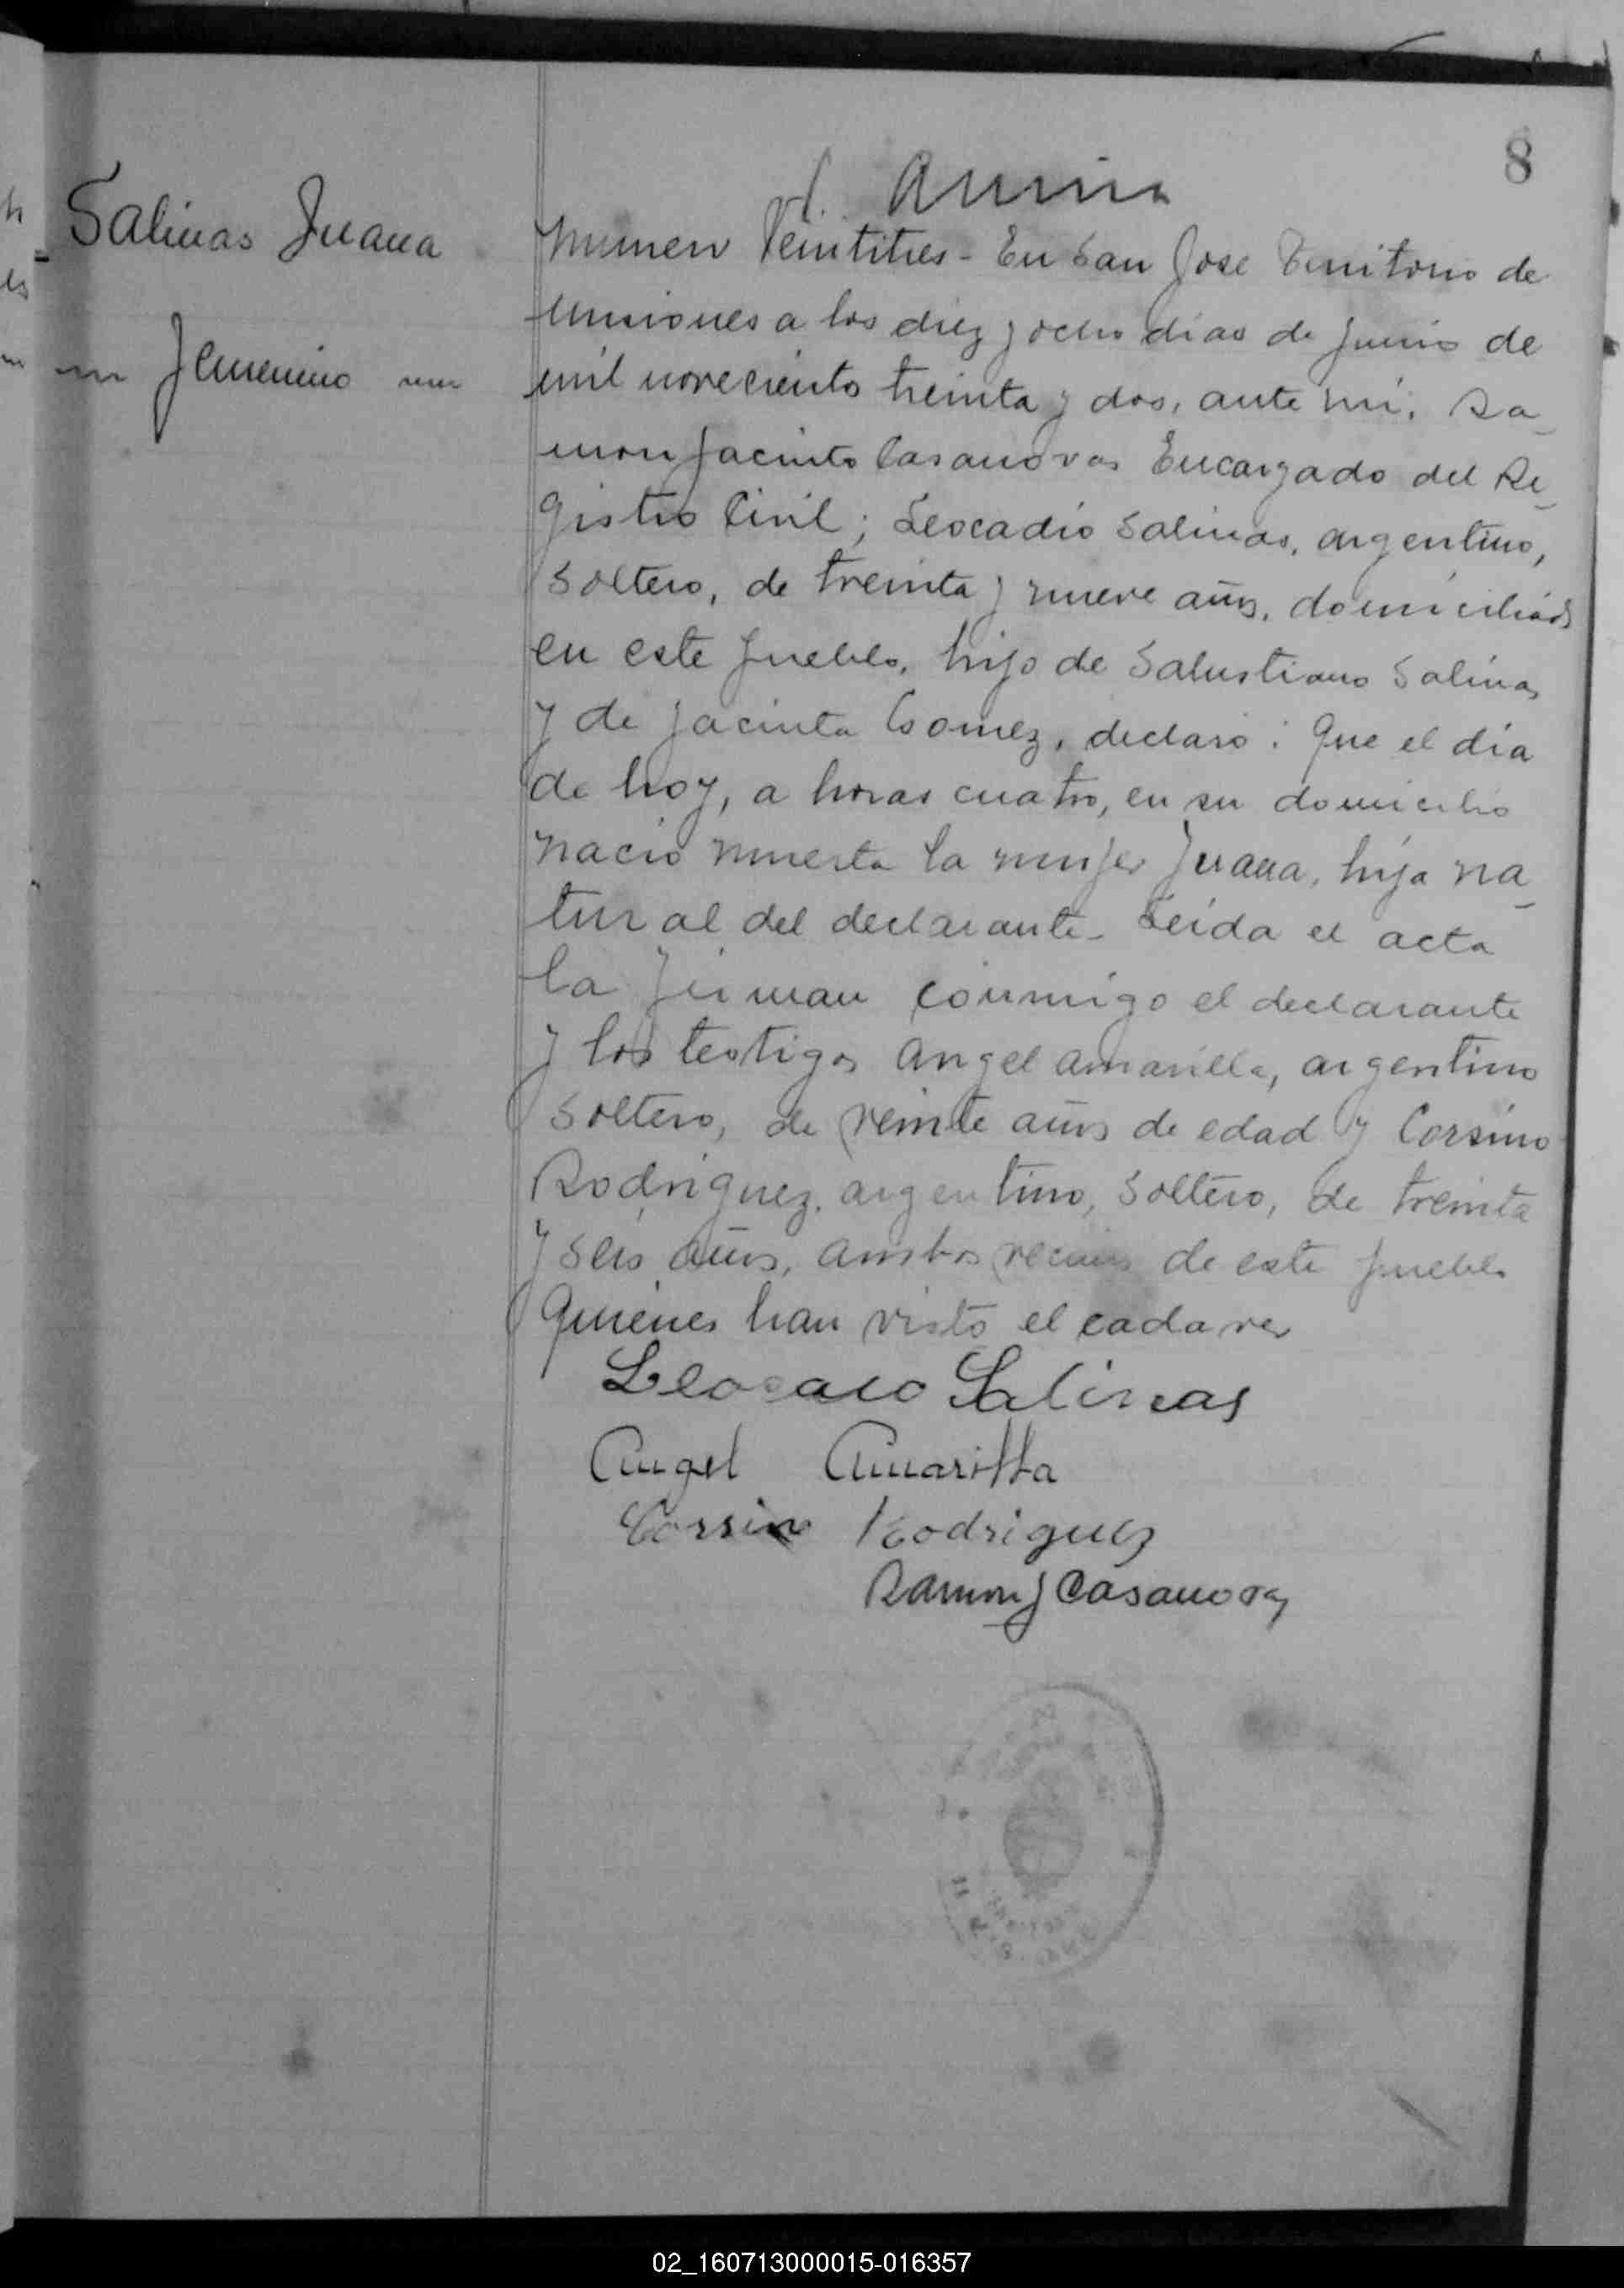 8
Salinas Juana
Femenino
Numero Veintitres - En San Jose Territorio de
Misiones a los diez y ocho dias de Junio de
mil noveciento treinta y dos, ante mi, Ra_
mon Jacinto Casanovas Encargado del Re_
gistro Civil; Leocadio Salinas, argentino,
soltero, de treinta y nueve años, domiciliado
en este pueblo, hijo de Salustiano Salinas
y de Jacinta Gomez, declaro: Que el dia
de hoy, a horas cuatro, en su domicilio
nacio muerta la mujer Juana, hija na_
tural del declarante - Leida el acta
la firman conmigo el declarante
y los testigos Angel Amarilla, argentino
soltero, de veinte años de edad y Corsino
Rodriguez, argentino, soltero, de treinta
y seis años, ambos vecinos de este pueblo
Quienes han visto el cadaver
Salinas
Angel Amarilla
Corsino Rodriguez
Ramon J Casanovas
02_160713000015-016357